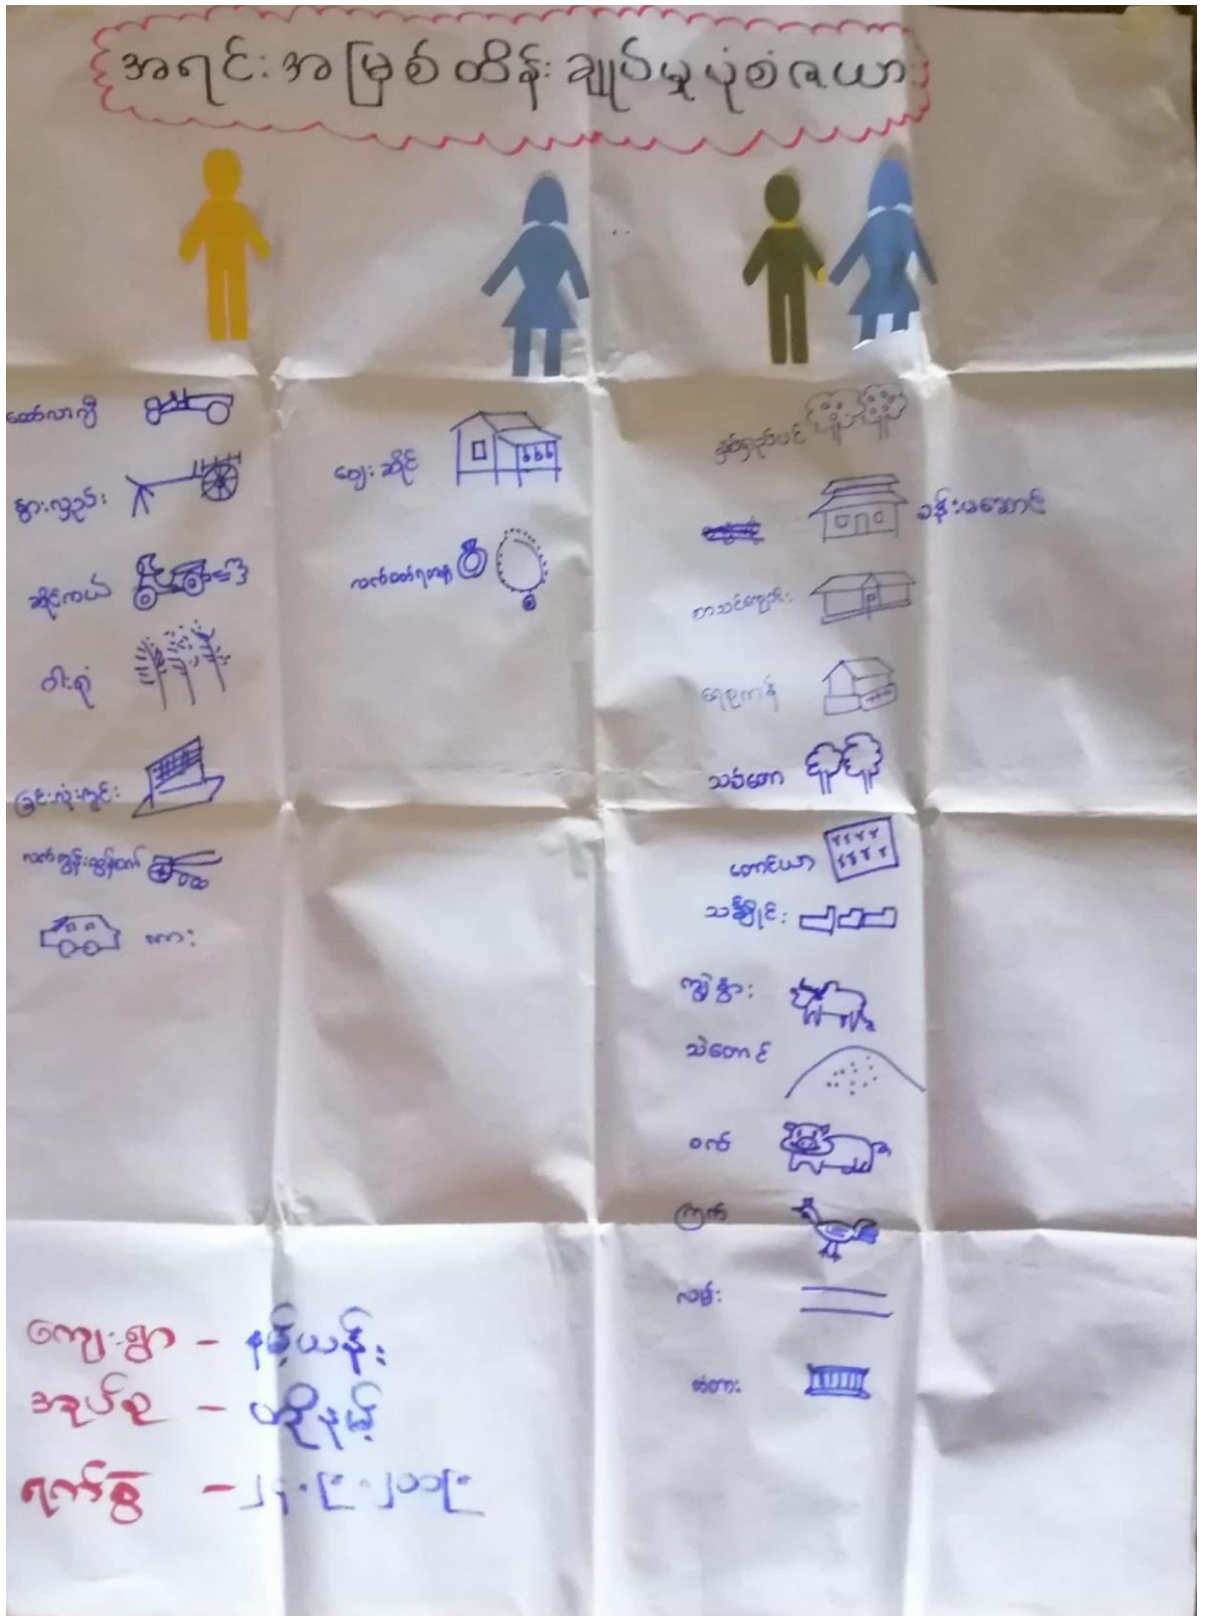 အရင်းအမြစ်ထိန်းချုပ်မှုပုံစံဇယား
ထော်လာဂျီ
နွားလှည်း
ဆိုင်ကယ်
ဝါးရုံ
ခြင်းလုံးကွင်း
လက်တွန်းထွန်စက်
ကား
ဈေးဆိုင်
လက်ဝတ်ရတနာ
နှစ်ရှည်ပင်
ခန်းမဆောင်
စာသင်ကျောင်း
ရေစုကန်
သစ်တော
တောင်ယာ
သင်္ချိုင်း
ကျွဲနွား
သဲတောင်
ဝက်
ကြက်
လမ်း
တံတား
ကျေးရွာ - နမ့်ယန်း
အုပ်စု - တိုနမ့်
ရက်စွဲ - ၂၄.၉.၂၀၁၉